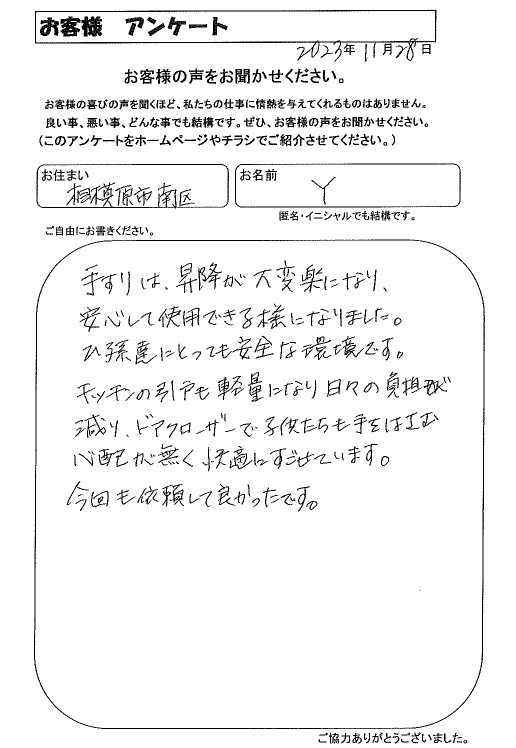 お客様 アンケート
2023年11月28日
お客様の声をお聞かせください。
お客様の喜びの声を聞くほど、私たちの仕事に情熱を与えてくれるものはありません。
良い事、悪い事、どんな事でも結構です。ぜひ、お客様の声をお聞かせください。
（このアンケートをホームページやチラシでご紹介させてください。）
お住まい
相模原市南区
お名前
Y
匿名・イニシャルでも結構です。
ご自由にお書きください。
手すりは、昇降が大変楽になり、
安心して使用できる様になりました。
ひ孫達にとっても安全な環境です。
キッチンの引戸も軽量になり日々の負担が
減り、ドアクローザーで子供たちも手をはさむ
心配が無く快適にすごせています。
今回も依頼して良かったです。
ご協力ありがとうございました。